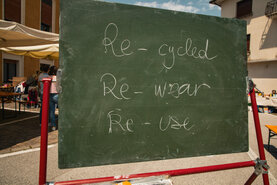 Re - cycled
Re - wear
Re - use